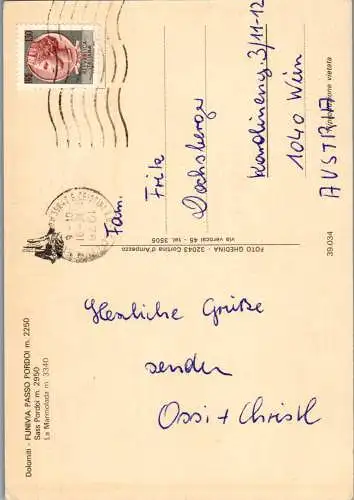 Dolomiti - FUNIVIA PASSO PORDOI m. 2250
Sass Pordoi m. 2950
La Marmolada m. 3340
Herzliche Grüße
senden
Ossi + Christl
FOTO GHEDINA - 32043 Cortina d'Ampezzo
via verocai 45 - tel. 3505
39.034
Riproduzione vietata
Fam.
Fritz
Dachsberger
Karolineng. 3/11-12
1040 Wien
AUSTRIA